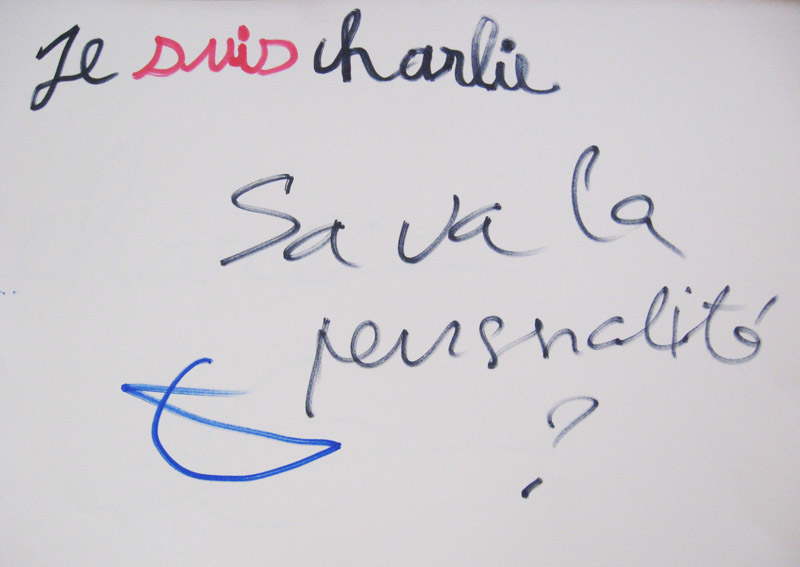 Je suis charlie
Sa va la
personalité
?